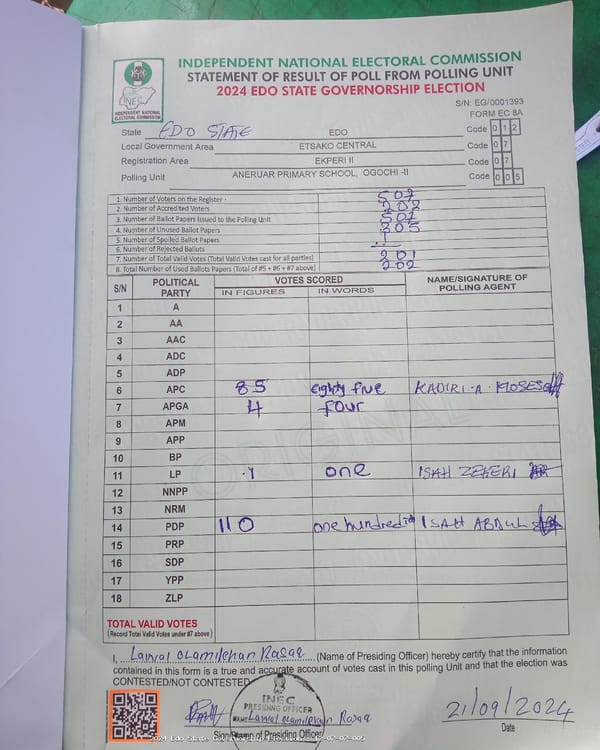 INDEPENDENT NATIONAL ELECTORAL COMMISSION
STATEMENT OF RESULT OF POLL FROM POLLING UNIT
2024 EDO STATE GOVERNORSHIP ELECTION
INEC
INDEPENDENT NATIONAL ELECTORAL COMMISSION
S/N: EG/0001393
FORM EC 8A
State EDO STATE EDO Code 0 1 2
Local Government Area ETSAKO CENTRAL Code 0 7
Registration Area EKPERI II Code 0 7
Polling Unit ANERUAR PRIMARY SCHOOL, OGOCHI -II Code 0 0 5
1. Number of Voters on the Register 507
2. Number of Accredited Voters 202
3. Number of Ballot Papers Issued to the Polling Unit
4. Number of Unused Ballot Papers 305
5. Number of Spoiled Ballot Papers
6. Number of Rejected Ballots
7. Number of Total Valid Votes (Total Valid Votes cast for all parties) 201
8. Total Number of Used Ballots Papers (Total of #5 + #6 + #7 above) 202
S/N POLITICAL PARTY VOTES SCORED NAME/SIGNATURE OF POLLING AGENT
IN FIGURES IN WORDS
1 A
2 AA
3 AAC
4 ADC
5 ADP
6 APC 85 eighty five KADIRI-A-MOSES
7 APGA 4 four
8 APM
9 APP
10 BP
11 LP 1 one ISAH ZEKERI
12 NNPP
13 NRM
14 PDP 110 one hundred ISAH ABDUL
15 PRP
16 SDP
17 YPP
18 ZLP
TOTAL VALID VOTES
(Record Total Valid Votes under #7 above)
ORIGINAL
I, Lawal Olamilekan Rasaq (Name of Presiding Officer) hereby certify that the information
contained in this form is a true and accurate account of votes cast in this polling Unit and that the election was
CONTESTED/NOT CONTESTED
INEC
PRESIDING OFFICER
NAME Lawal Olamilekan Rasaq
of Presiding Officer
21/09/2024
Date